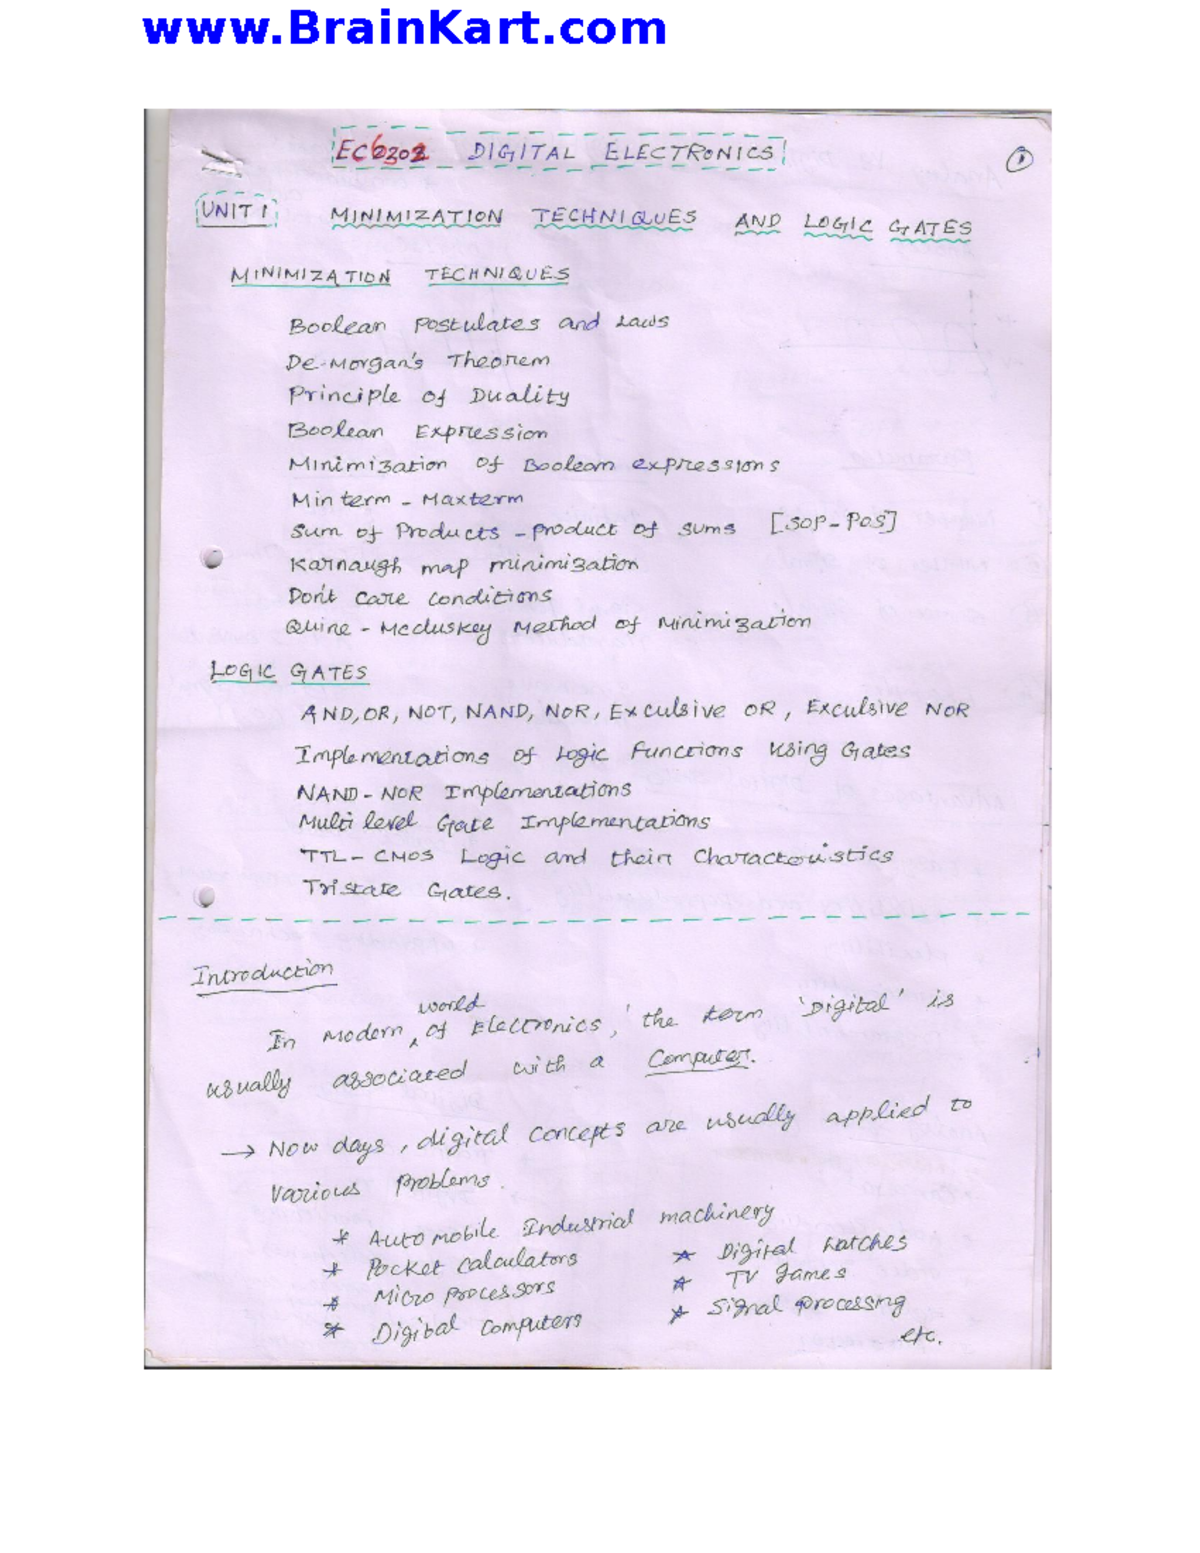 www.BrainKart.com
EC6302 DIGITAL ELECTRONICS
1
UNIT 1 MINIMIZATION TECHNIQUES AND LOGIC GATES
MINIMIZATION TECHNIQUES
Boolean Postulates and Laws
De-Morgan's Theorem
Principle of Duality
Boolean Expression
Minimization of Boolean expressions
Minterm - Maxterm
Sum of Products - product of sums [SOP-POS]
Karnaugh map minimization
Don't care conditions
Quine - Mccluskey Method of Minimization
LOGIC GATES
AND, OR, NOT, NAND, NOR, Exculsive OR, Exculsive NOR
Implementations of Logic Functions using Gates
NAND-NOR Implementations
Multi level Gate Implementations
TTL - CMOS Logic and their Characteristics
Tristate Gates.
Introduction
In modern world of Electronics, the term 'Digital' is
usually associated with a Computer.
→ Now days, digital concepts are usually applied to
various problems.
* Automobile Industrial machinery
* Pocket calculators * Digital watches
* Micro processors * TV games
* Digital computers * Signal processing
etc.